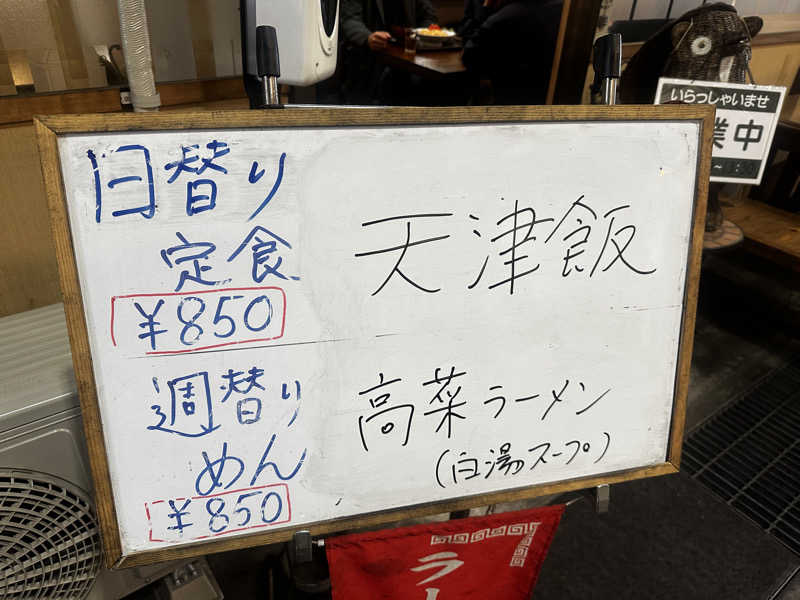 日替り
定食
¥850
天津飯
週替り
めん
¥850
高菜ラーメン
(白湯スープ)
いらっしゃいませ
業中
ラー